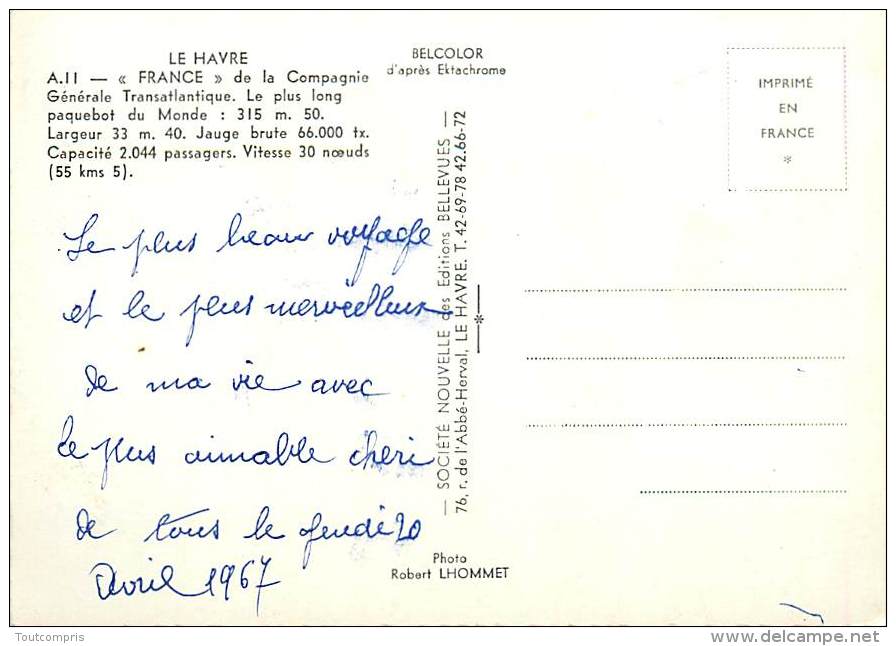 LE HAVRE
A.11 — « FRANCE » de la Compagnie
Générale Transatlantique. Le plus long
paquebot du Monde : 315 m. 50.
Largeur 33 m. 40. Jauge brute 66.000 tx.
Capacité 2.044 passagers. Vitesse 30 nœuds
(55 kms 5).
Le plus beau voyage
et le plus merveilleux
de ma vie avec
le plus aimable cheri
de tous le jeudi 20
Avril 1967
BELCOLOR
d'après Ektachrome
— SOCIÉTÉ NOUVELLE des Editions BELLEVUES —
76, r. de l'Abbé-Herval, LE HAVRE. T. 42-69-78 42.66-72
—*—
Photo
Robert LHOMMET
IMPRIMÉ
EN
FRANCE
*
Toutcompris
www.delcampe.net